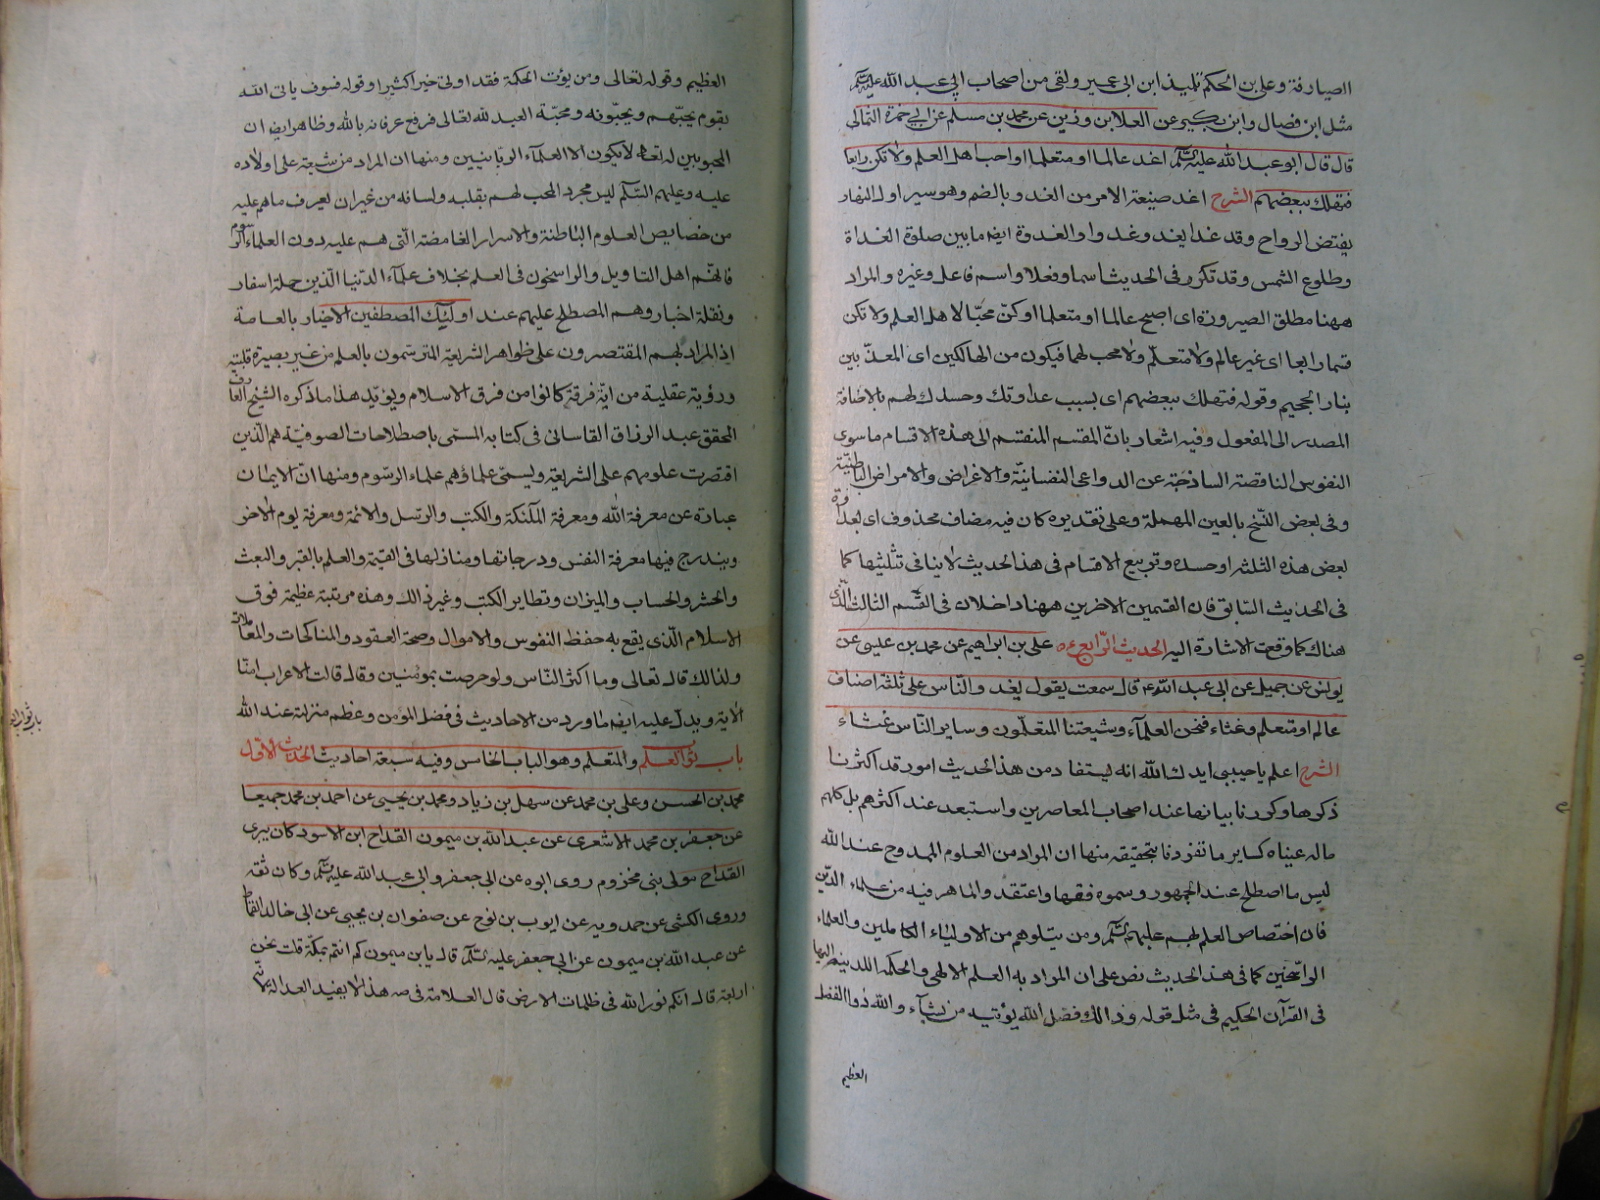 الصيارفة وعلي بن الحكم تلميذ ابن ابي عمير ولقي من اصحاب ابي عبد الله عليه السلم
مثل ابن فضال وابن بكير عن العلا بن رزين عن محمد بن مسلم عن ابي حمزة الثمالي
قال قال ابو عبد الله عليه السلم اغد عالما او متعلما او احب اهل العلم ولا تكن رابعا
فتهلك ببعضهم الشرح اغد صيغة الامر من الغدو بالضم وهو سير اول النهار
يقتض الرواح وقد غدا يغدو غدوا والغدوة ايضه ما بين صلوة الغداة
وطلوع الشمس وقد تكرر في الحديث اسما وفعلا واسم فاعل وغيره والمراد
ههنا مطلق الصيرورة اى اصبح عالما او متعلما او كن محبّا لاهل العلم ولا تكن
قسما رابعا اى غير عالم ولا متعلّم ولا محب لهما فيكون من الهالكين اى المعذّبين
بنار الجحيم وقوله فتهلك ببعضهم اى بسبب عداوتك وحسدك لهم بالاضافة
المصدر الى المفعول وفيه اشعار بانّ المقسم المنقسم الى هذه الاقسام ما سوى
النفوس الناقصة الساذجة عن الدواعى النفسانيّة والاغراض والامراض الباطنيّة
وفى بعض النّسخ بالعين المهملة وعلى تقديره كان فيه مضاف محذوف اى بعداوة
بعض هذه الثلثه او حسده وتربيع الاقسام فى هذا الحديث لا ينافى تثليثها كما
فى الحديث السّابق فان القسمين الاخرين ههنا داخلان فى القسم الثالث الّذى
هناك كما وقعت الاشارة اليه الحديث الرّابع علي بن ابراهيم عن محمد بن عيسى عن
يونس عن جميل عن ابى عبد الله ع قال سمعت يقول يغدو النّاس على ثلثة اصناف
عالم او متعلم وغثاء فنحن العلمآء وشيعتنا المتعلّمون وساير النّاس غثاء
الشرح اعلم يا حبيبى ايدك الله انه يستفاد من هذا الحديث امور قد اكثرنا
ذكرها وكررنا بيانها عند اصحاب المعاصرين واستبعد عند اكثرهم بل كلهم
ماله عيناه كساير ما تفردنا بتحقيقه منها ان المراد من العلوم الممدوح عند الله
ليس ما اصطلح عند الجمهور وسموه فقها واعتقد والماهر فيه من علماء الدّين
فان اختصاص العلم لهم عليهم السلم ومن يتلوهم من الاولياء الكاملين والعلماء
الراسخين كما فى هذا الحديث نص على ان المراد به العلم الالهى والحكمه اللدنيه المشار اليها
فى القرآن الحكيم فى مثل قوله وذالك فضل الله يؤتيه من يشآء والله ذو الفضل
العظيم
العظيم وقوله تعالى ومن يؤت الحكمة فقد اوتى خيرا كثيرا وقوله فسوف ياتى الله
بقوم يحبّهم ويحبّونه ومحبّة العبد لله تعالى فرع عرفانه بالله وظاهر ايضه ان
المحبوبين له تعالى لا يكون الا العلمآء الربّانيين ومنها ان المراد من شيعة على واولاده
عليه وعليهم السّلم ليس مجرد المحب لهم بقلبه ولسانه من غير ان يعرف ما هم عليه
من خصايص العلوم الباطنة والاسرار الغامضة الّتى هم عليه دون العلماء الرسوم
فانّهم اهل التاويل والراسخون فى العلم بخلاف علمآء الدّنيا الّذين حملة اسفار
ونقلة اخبار وهم المصطلح عليهم عند اولئيك المصطفين الاخيار بالعامة
اذ المراد لهم المقتصرون على ظواهر الشريعة المترسّمون بالعلم من غير بصيرة قلبيّه
ورؤية عقلية من ايّة فرقة كانوا من فرق الاسلام ويؤيّد هذا ما ذكره الشيخ العارف
المحقق عبد الرزاق القاسانى فى كتابه المسمّى باصطلاحات الصوفيّة هم الّذين
اقتصرت علومهم على الشريعة ويسمّى علماؤهم علماء الرّسوم ومنها انّ الايمان
عبارة عن معرفة الله ومعرفة الملئكة والكتب والرّسل والائمة ومعرفة يوم الاخر
ويندرج فيها معرفة النفس ودرجاتها ومنازلها فى القيمة والعلم بالقبر والبعث
والحشر والحساب والميزان وتطاير الكتب وغير ذالك وهذه مرتبة عظيمة فوق
الاسلام الّذى يقع به حفظ النفوس والاموال وصحة العقود والمناكحات والمعاملات
ولذالك قال تعالى وما اكثر النّاس ولو حرصت بمؤمنين وقال قالت الاعراب امنّا
الاية ويدلّ عليه ايضه ما ورد من الاحاديث فى فضل المؤمن وعظم منزلته عند الله
باب ثواب العلم والمتعلم وهو الباب الخامس وفيه سبعة احاديث الحديث الاوّل
محمد بن الحسن وعلى بن محمد عن سهل بن زياد ومحمد بن يحيى عن احمد بن محمد جميعا
عن جعفر بن محمد الاشعرى عن عبد الله بن ميمون القداح ابن الاسود كان يبرى
القداح مولى بنى مخزوم روى ابوه عن ابى جعفر وابى عبد الله عليه السلم وكان ثقه
وروى الكشى عن حمدويه عن ايوب بن نوح عن صفوان بن يحيى عن ابى خالد القماط
عن عبد الله بن ميمون عن ابى جعفر عليه السّلم قال يا بن ميمون كم انتم بمكّة قلت نحن
اربعة قال انكم نور الله فى ظلمات الارض قال العلامة فى صه هذا لا يفيد العدالة